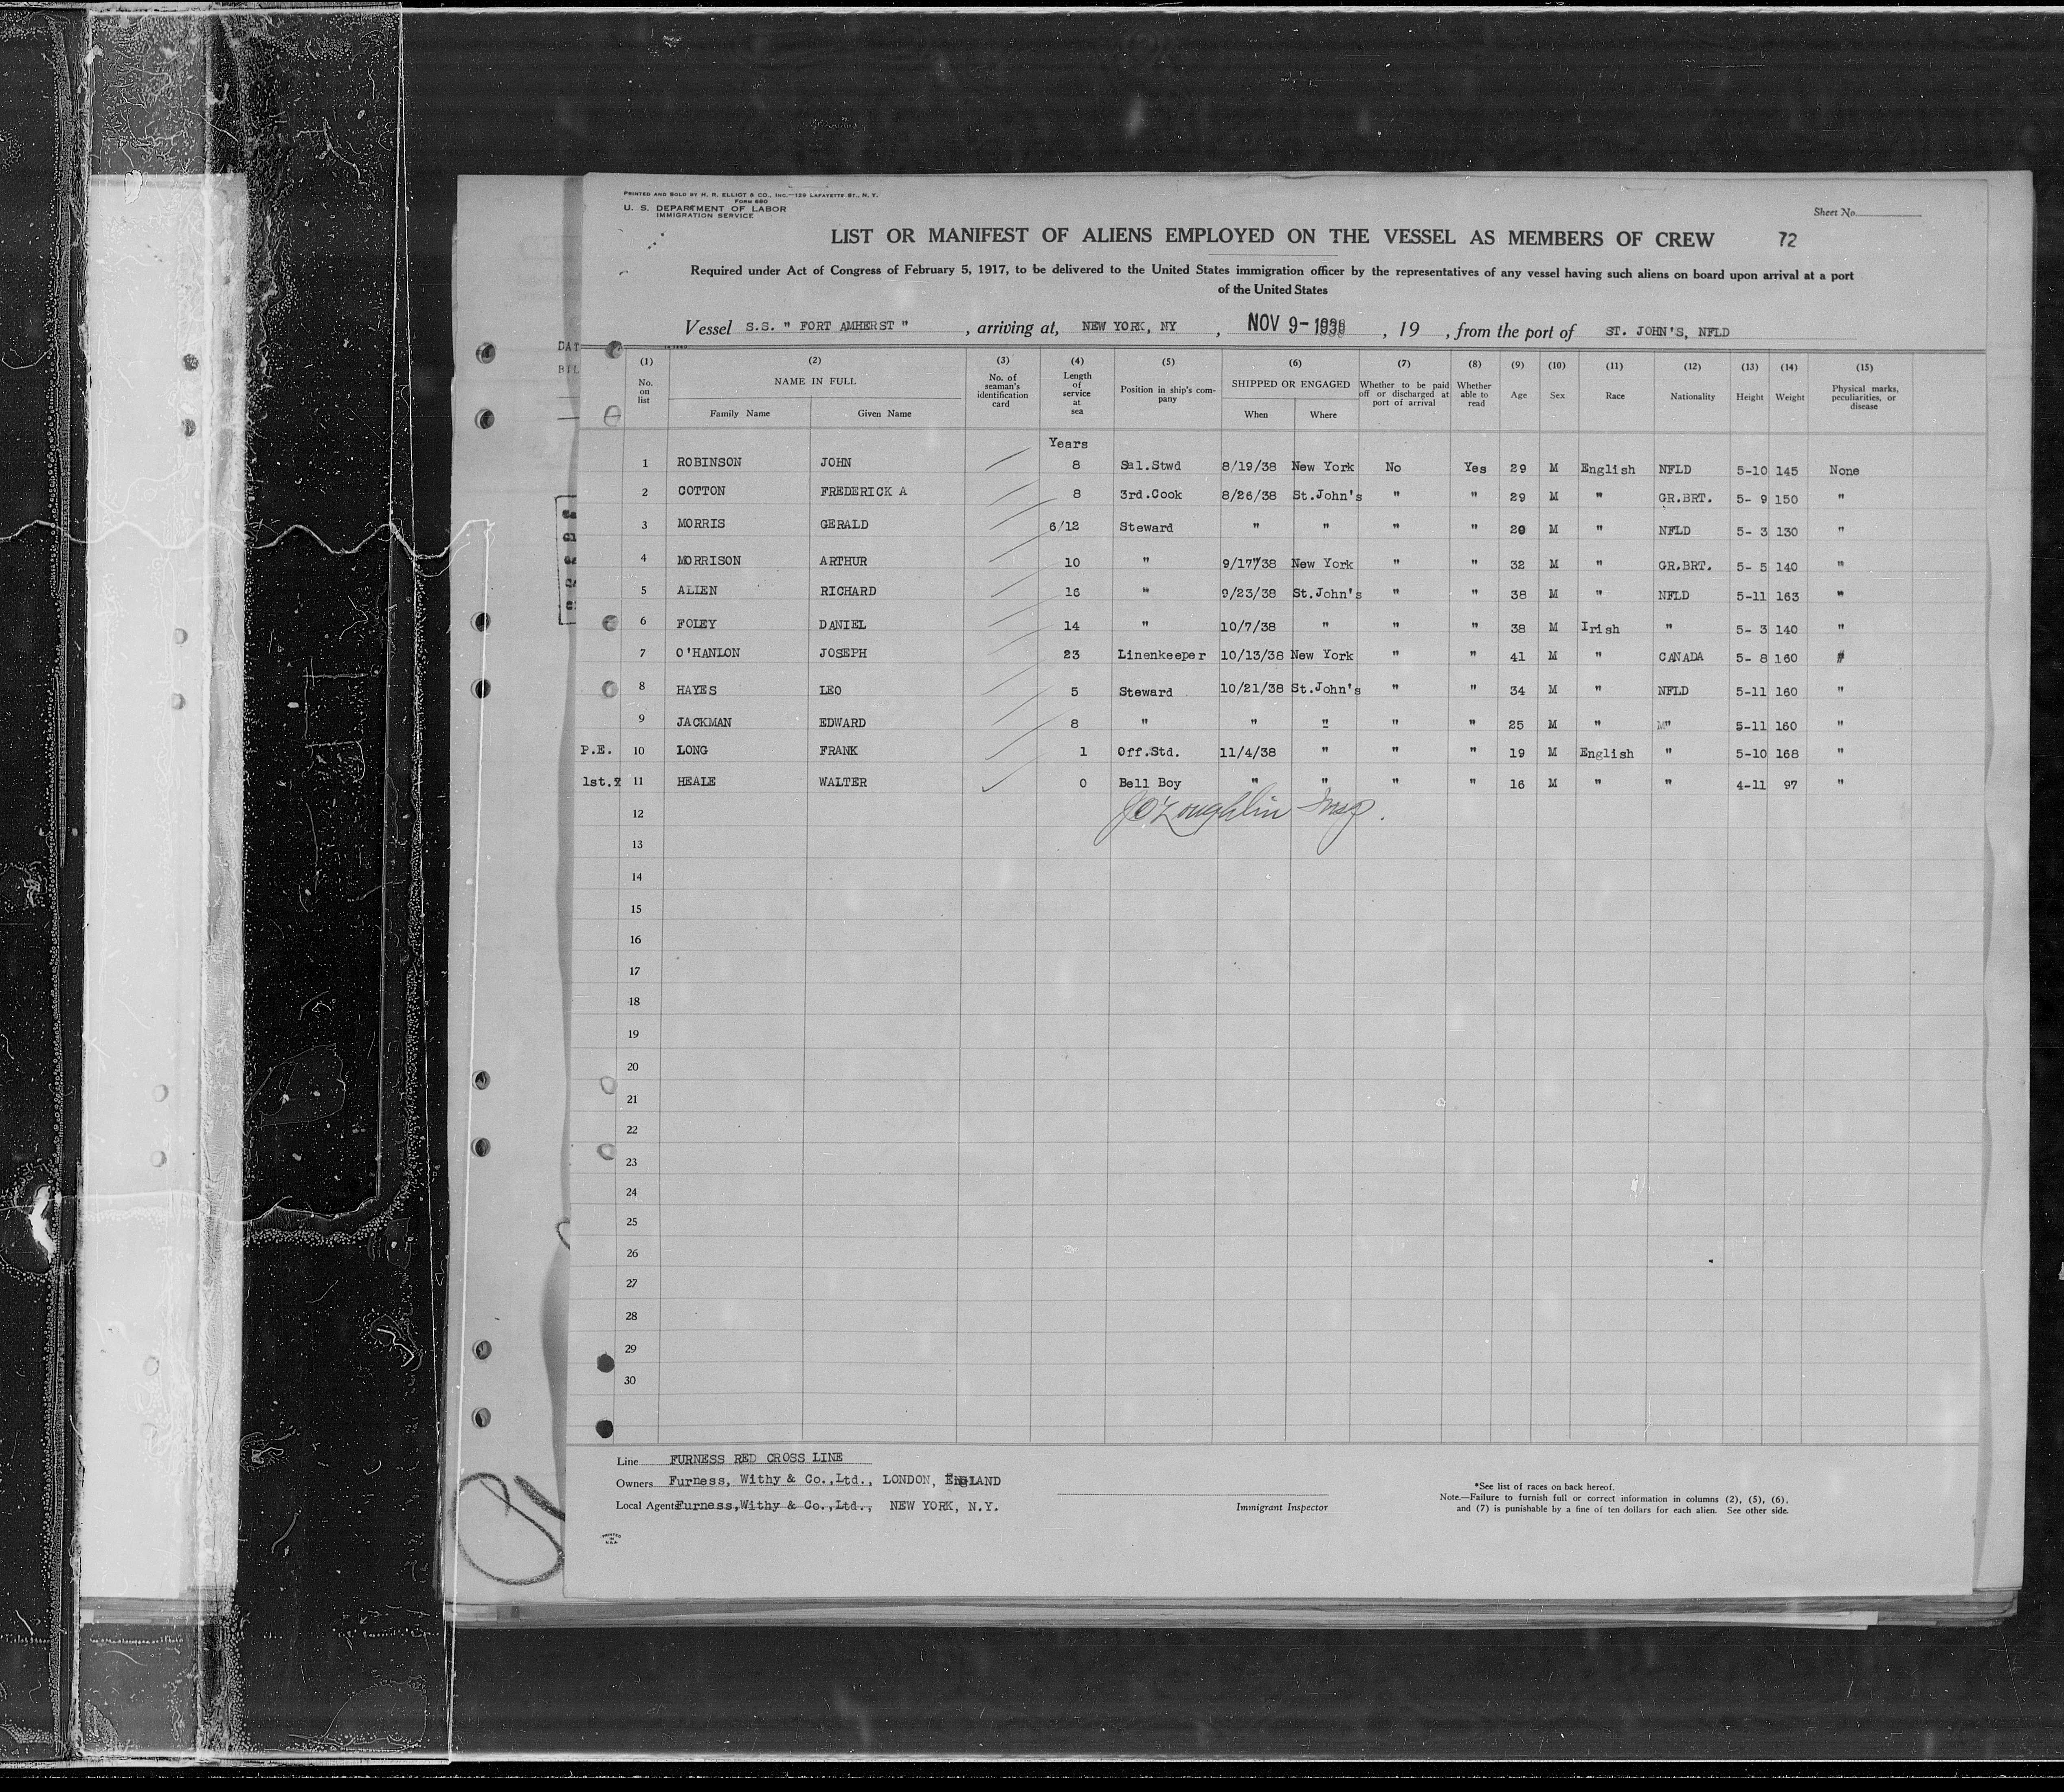 PRINTED AND SOLD BY H. R. ELLIOT & CO., INC.—129 LAFAYETTE ST., N. Y.
FORM 680
U. S. DEPARTMENT OF LABOR
IMMIGRATION SERVICE
Sheet No.
LIST OR MANIFEST OF ALIENS EMPLOYED ON THE VESSEL AS MEMBERS OF CREW 72
Required under Act of Congress of February 5, 1917, to be delivered to the United States immigration officer by the representatives of any vessel having such aliens on board upon arrival at a port
of the United States
Vessel S.S. " FORT AMHERST " , arriving at, NEW YORK, NY , NOV 9- 1938 , 19 , from the port of ST. JOHN'S, NFLD
(1) (2) (3) (4) (5) (6) (7) (8) (9) (10) (11) (12) (13) (14) (15)
No. on list NAME IN FULL Family Name Given Name No. of seaman's identification card Length of service at sea Position in ship's company SHIPPED OR ENGAGED When Where Whether to be paid off or discharged at port of arrival Whether able to read Age Sex Race Nationality Height Weight Physical marks, peculiarities, or disease
Years
1 ROBINSON JOHN 8 Sal.Stwd 8/19/38 New York No Yes 29 M English NFLD 5-10 145 None
2 COTTON FREDERICK A 8 3rd.Cook 8/26/38 St.John's " " 29 M " GR.BRT. 5- 9 150 "
3 MORRIS GERALD 6/12 Steward " " " " 20 M " NFLD 5- 3 130 "
4 MORRISON ARTHUR 10 " 9/17/38 New York " " 32 M " GR.BRT. 5- 5 140 "
5 ALLEN RICHARD 16 " 9/23/38 St.John's " " 38 M " NFLD 5-11 163 "
6 FOLEY DANIEL 14 " 10/7/38 " " " 38 M Irish " 5- 3 140 "
7 O'HANLON JOSEPH 23 Linenkeeper 10/13/38 New York " " 41 M " CANADA 5- 8 160 "
8 HAYES LEO 5 Steward 10/21/38 St.John's " " 34 M " NFLD 5-11 160 "
9 JACKMAN EDWARD 8 " " " " " 25 M " " 5-11 160 "
P.E. 10 LONG FRANK 1 Off.Std. 11/4/38 " " " 19 M English " 5-10 168 "
1st. 11 HEALE WALTER 0 Bell Boy " " " " 16 M " " 4-11 97 "
12 J O'Loughlin Insp.
13
14
15
16
17
18
19
20
21
22
23
24
25
26
27
28
29
30
Line FURNESS RED CROSS LINE
Owners Furness, Withy & Co.,Ltd., LONDON, ENGLAND
Local Agents Furness,Withy & Co.,Ltd., NEW YORK, N.Y.
Immigrant Inspector
*See list of races on back hereof.
Note.—Failure to furnish full or correct information in columns (2), (5), (6),
and (7) is punishable by a fine of ten dollars for each alien. See other side.
PRINTED
IN
U.S.A.